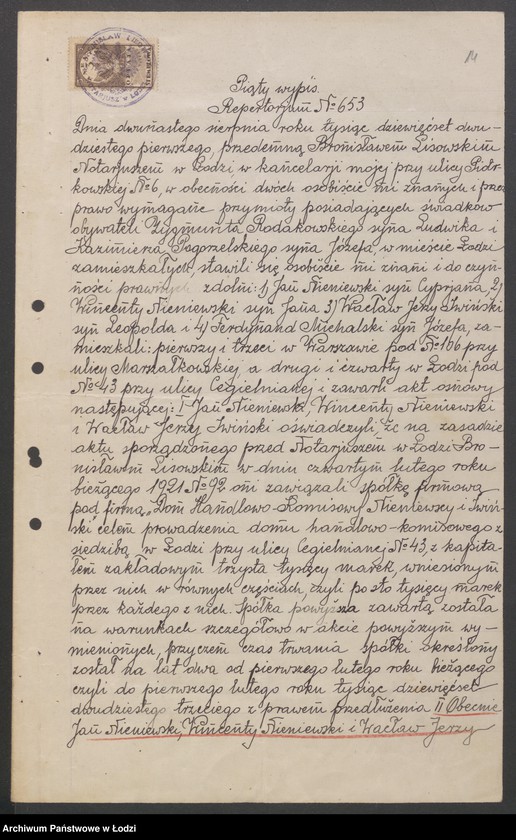 14
Piąty wypis.
Repertorjum № 653
Dnia dwunastego sierpnia roku tysiąc dziewięćset dwu-
dziestego pierwszego, przedemną Bronisławem Lisowskim
Notarjuszem w Łodzi w kancelarji mojej przy ulicy Piotr-
kowskiej № 6, w obecności dwóch osobiście mi znanych i przez
prawo wymagane przymioty posiadających świadków
obywateli Zygmunta Rodakowskiego syna Ludwika i
Kazimierza Pogorzelskiego syna Józefa, w mieście Łodzi
zamieszkałych, stawili się osobiście mi znani i do czyn-
ności prawnych zdolni: 1) Jan Nieniewski syn Cyprjana, 2)
Wincenty Nieniewski syn Jana 3) Wacław Jerzy Iwiński
syn Leopolda i 4) Ferdynand Michalski syn Józefa, za-
mieszkali: pierwszy i trzeci w Warszawie pod № 106 przy
ulicy Marszałkowskiej a drugi i czwarty w Łodzi pod
№ 43 przy ulicy Cegielnianej i zawarli akt osnowy
następującej: I Jan Nieniewski, Wincenty Nieniewski
i Wacław Jerzy Iwiński oświadczyli, że na zasadzie
aktu sporządzonego przed Notarjuszem w Łodzi Bro-
nisławem Lisowskim w dniu czwartym lutego roku
bieżącego 1921 № 92 oni zawiązali spółkę firmową
pod firmą „Dom Handlowo-Komisowy Nieniewscy i Iwiń-
ski" celem prowadzenia domu handlowo-komisowego z
siedzibą w Łodzi przy ulicy Cegielnianej № 43, z kapita-
łem zakładowym trzysta tysięcy marek, wniesionym
przez nich w równych częściach, czyli po sto tysięcy marek
przez każdego z nich. Spółka powyższa zawartą została
na warunkach szczegółowo w akcie powyższym wy-
mienionych, przyczem czas trwania spółki określony
został na lat dwa od pierwszego lutego roku bieżącego
czyli do pierwszego lutego roku tysiąc dziewięćset
dwudziestego trzeciego z prawem przedłużenia II Obecnie
Jan Nieniewski, Wincenty Nieniewski i Wacław Jerzy
Archiwum Państwowe w Łodzi